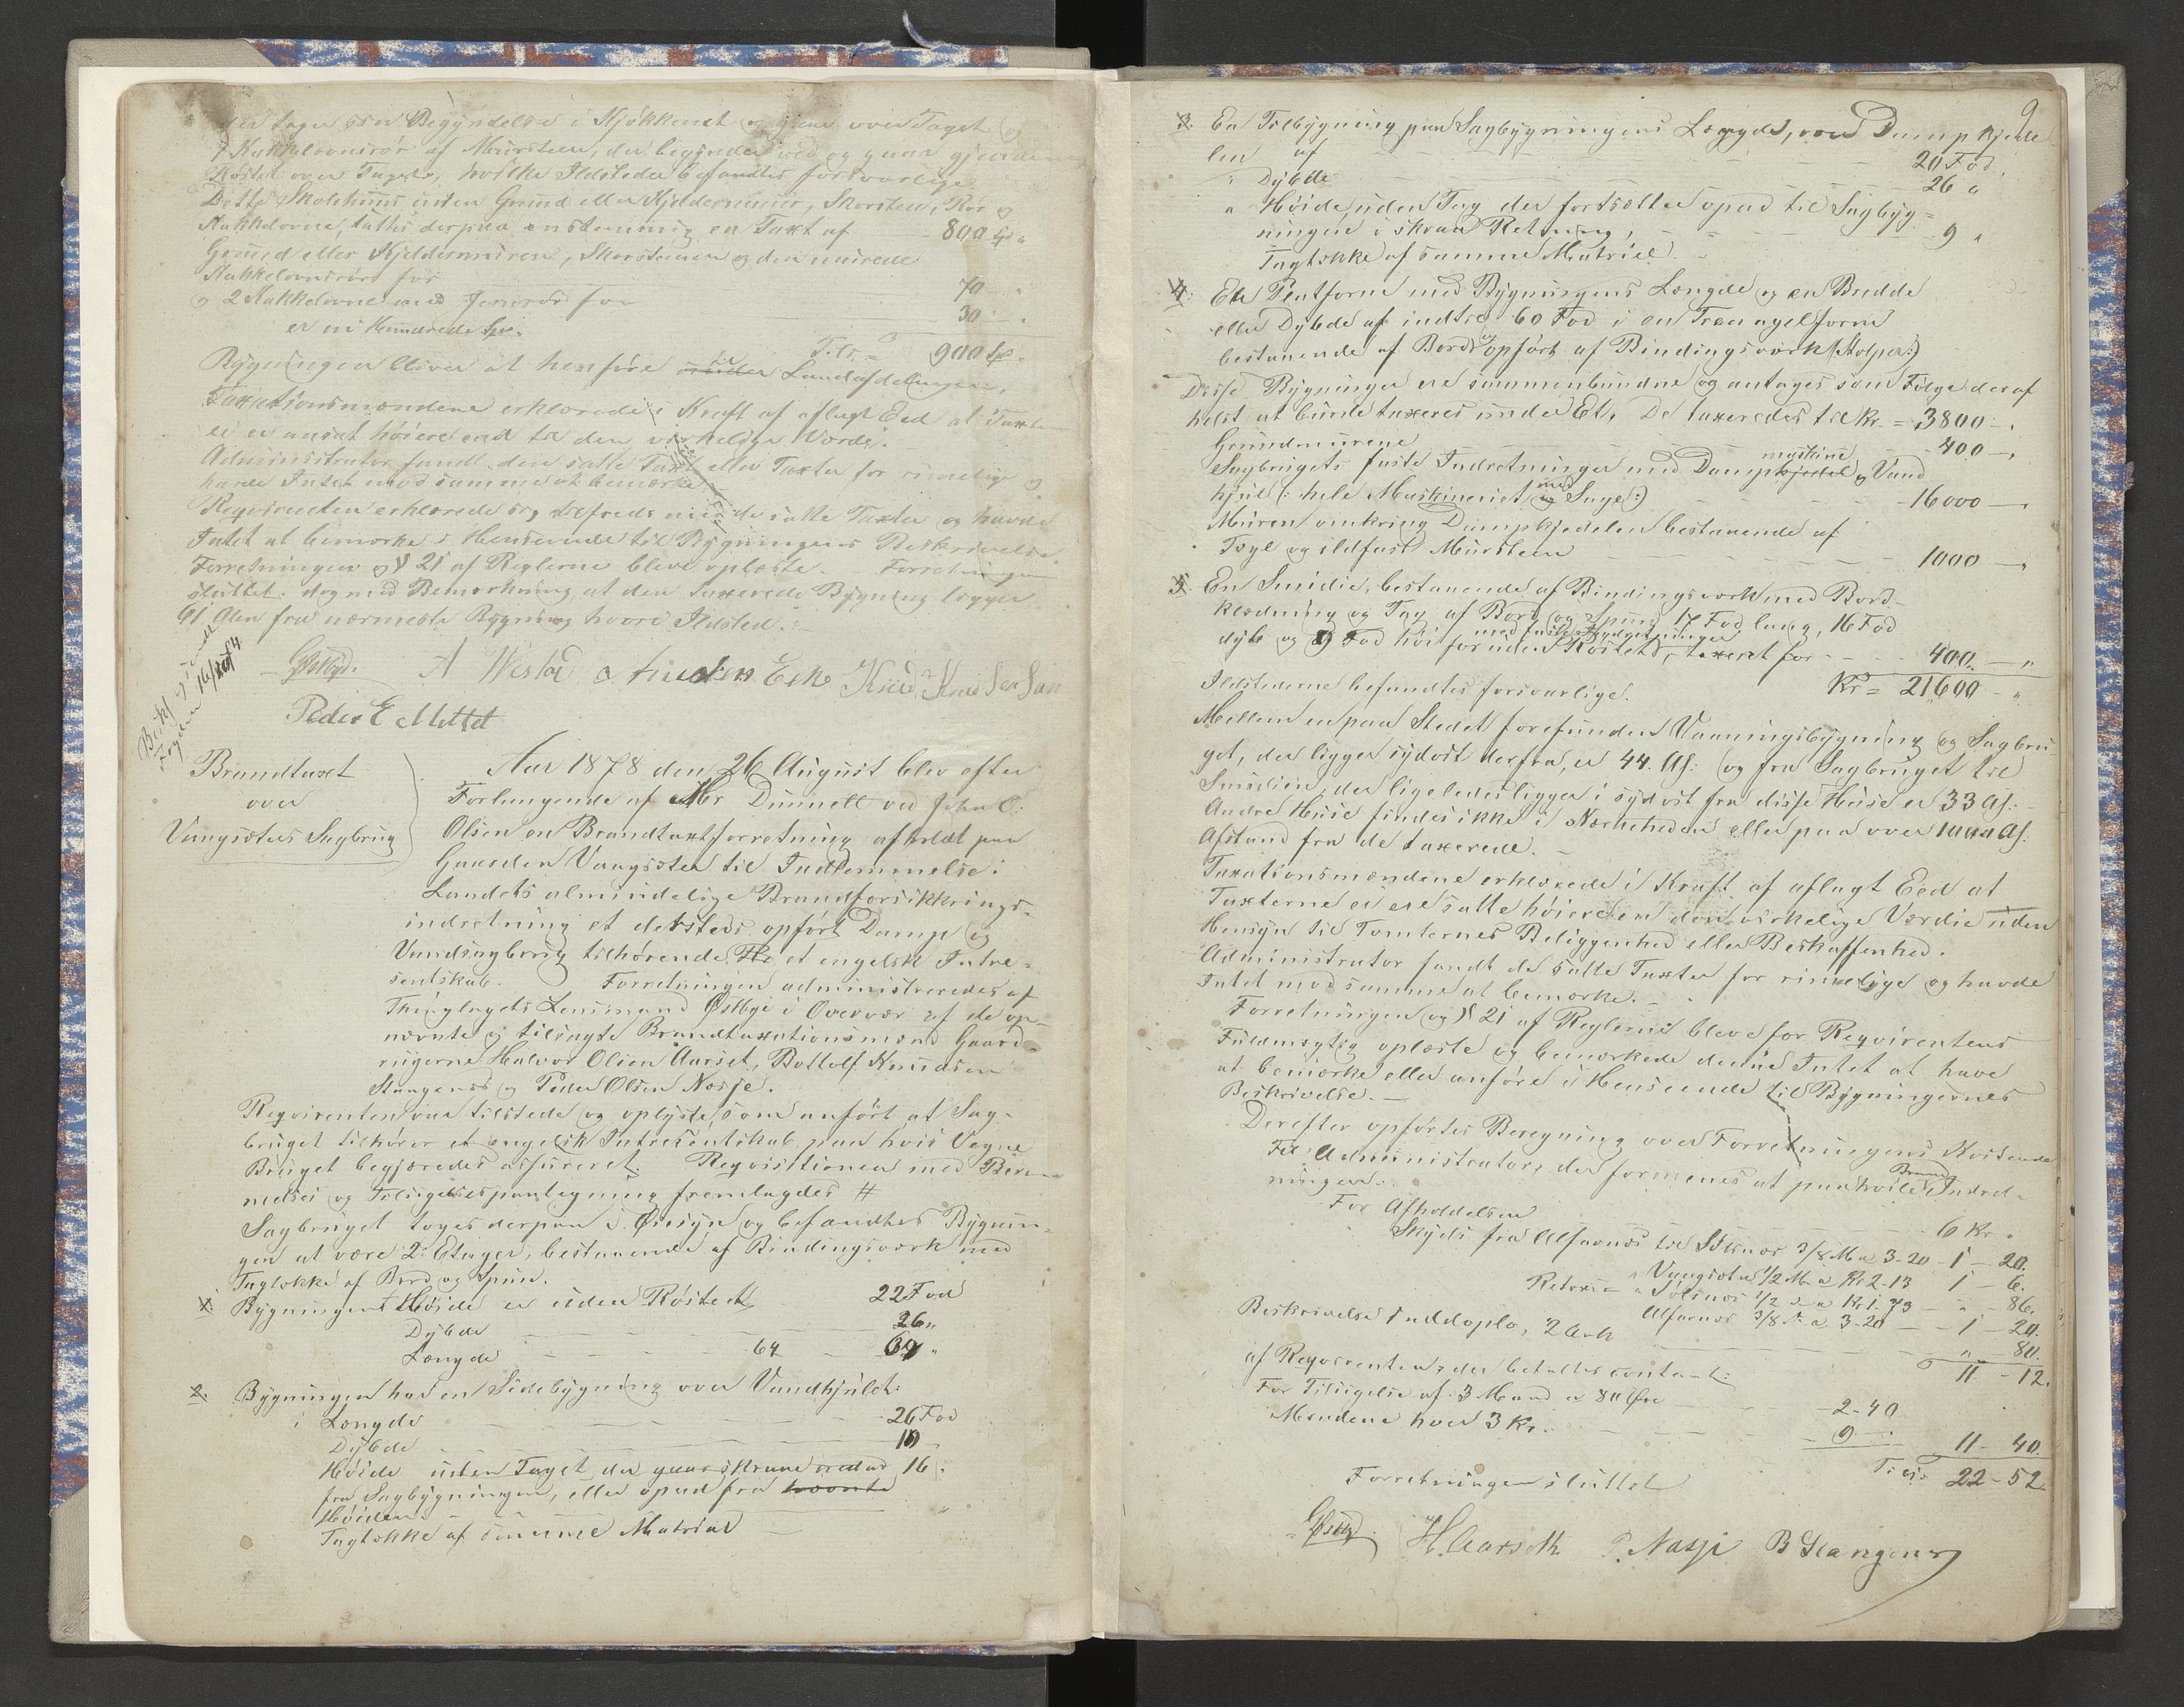 der tager sin Begyndelse i Kjøkkenet og gaar over Taget og
1 Kakkelovnsrør af Mursteen, der begynder ved og gaar gjennem
Røstet over Taget, hvilke Ildsteder befandtes forsvarlige
Dette Skolehuus uden Grund eller Kjeldermuur, Skorsten, Rør og
Kakkelovne, sattes derpaa enstemmig en Taxt af 800 Spd "
Grund eller Kjeldermuren, Skorstenen og den murede
Kakkelovnsrør for 70 — "
og 2 Kakkelovne med Jernrør for 30 — "
er ni Hundrede Spd. Tils. = 900 Spd.
Bygningen bliver at henføre under til Landafdelingen.
Taxationsmændene erklærede i Kraft af aflagt Eed at Taxten
ei er ansat høiere end til den virkelige Værdi.
Administrator fandt den satte Taxt eller Taxter for rimelige og
havde Intet mod samme at bemærke.
Reqvirenten erklærede sig tilfreds med de satte Taxter og havde
Intet at bemærke i Henseende til Bygningens Beskrivelse.
Forretningen og § 21 af Reglerne bleve oplæste. Forretningen
sluttet. dog med Bemærkning, at den taxerede Bygning ligger
61 Alen fra nærmeste Bygning hvori Ildsted.
GØstbye. A Westad Knud Knudsen
Peder E Mittet
Brandtaxt
over
Vangsæters Sagbrug
Aar 1878 den 26 August blev efter
Forlangende af Mr Dunnell ved John O.
Olsen en Brandtaxtforretning afholdt paa
Gaarden Vangsæter til Indlemmelse i
Landets almindelige Brandforsikkrings-
indretning et dersteds opført Damp og
Vandsagbrug tilhørende et engelsk Intre-
sentskab. Forretningen administreredes af
Thinglagets Lensmand Østbye i Overvær af de op-
nævnte og tilsagte Brandtaxationsmænd Gaard-
rugerne Halvor Olsen Aarset, Bottolf Knudsen
Stangenes og Peder Olsen Nasje.
Reqvirenten var tilstede og oplyste, som anført at Sag-
bruget tilhører et engelsk Intresentskab paa hvis Vegne
Bruget begjæredes assureret. Reqvisitionen med Beram-
melses og Tilsigelsespaategning fremlagdes #
Sagbruget toges derpaa i Øiesyn og befandtes Bygnin-
gen at være 2 Etager, bestaaende af Bindingsværk med
Tagtække af Bord og Spun.
1. Bygningens Høide er uden Røstet 22 Fod
Dybde 26 "
Længde 64 64 "
2. Bygningen har en Sidebygning over Vandhjulet:
i Længde 26 Fod
Dybde 10
Høide uden Taget der gaar skraae nedad 16 "
fra Sagbygningen, eller opad fra
Høiden "
Tagtække af samme Matrial
9
3. En Tilbygning paa Sagbygningens Længde, over Dampkjede-
len af 20 Fod.
" Dybde 26 "
" Høide, uden Tag der fortsætter opad til Sagbyg-
ningen i skraa Retning, 9 "
Tagtække af samme Matriel.
4. En Platform med Bygningens Længde og en Bredde
eller Dybde af indtil 60 Fod i en Treangelform
bestaaende af Bord og opført af Bindingsværk (Stolper:)
Disse Bygninger ere sammenbundne og antages som Følge deraf
helst at burde taxeres under Et. De taxeredes til Kr. = 3800 — "
Grundmurene 400 — "
Sagbrugets faste Indretninger med Dampkjedel maskine og Vand
hjul (: hele Maskineriet og med Sage:) 16000 — "
Muren omkring Dampkjedelen bestaaende af
Tegl og ildfast Mursten 1000 — "
5. En Smidie, bestaaende af Bindingsværk med Bord-
klædning og Tag af Bord og Spun, 17 Fod lang, 16 Fod
dyb og 9 Fod høi foruden Røstet, med faste Indretninger taxeret for 400 — "
Ildstederne befandtes forsvarlige. Kr = 21600 - "
Mellem en paa Stedet forefunden Vaaningsbygning og Sagbru-
get, der ligger sydost derfra, er 44. Al: og fra Sagbruget til
Smidien, der ligeledes ligger i sydost fra disse Huse er 33 Al:
Andre Huse findes ikke i Nærheden eller paa over 1000 Al:
Afstand fra de taxerede.
Taxationsmændene erklærede i Kraft af aflagt Eed at
Taxterne ei ere satte høiere end den virkelige Værdie uden
Hensyn til Tomternes Beliggenhed eller Beskaffenhed.
Administrator fandt de satte Taxter for rimelige og havde
Intet mod samme at bemærke.
Forretningen og § 21 af Reglerne bleve for Reqvirentens
Fuldmægtig oplæste og bemærkede denne Intet at have
at bemærke eller anføre i Henseende til Bygningernes
Beskrivelse.
Derefter opførtes Beregning over Forretningens Kostende
Til Administrator, der formenes at paahvile Brand Indret-
ningen.
For Afholdelsen 6 Kr. "
Skyds fra Alfarnæs til Sølsnæs 3/8 M a 3-20 - 1 - 20.
" Vangsæter 1/2 M a Kr 2-13 1 - 6.
Retour = " Sølsnæs 1/2 - a Kr 1.73 - " - 86.
Alfarnæs 3/8 - a 3-20 - 1 - 20.
Beskrivelse i dupplo, 2 Ark " - 80.
af Reqvirenten, der betaltes contant: 11 - 12.
For Tilsigelse af 3 Mand a 80 Øre 2-40
Mændene hver 3 Kr. 9 - " 11 - 40.
Tils: 22 - 52.
Forretningen sluttet
GØstby. H. Aarseth P. Nasje B Stangenes